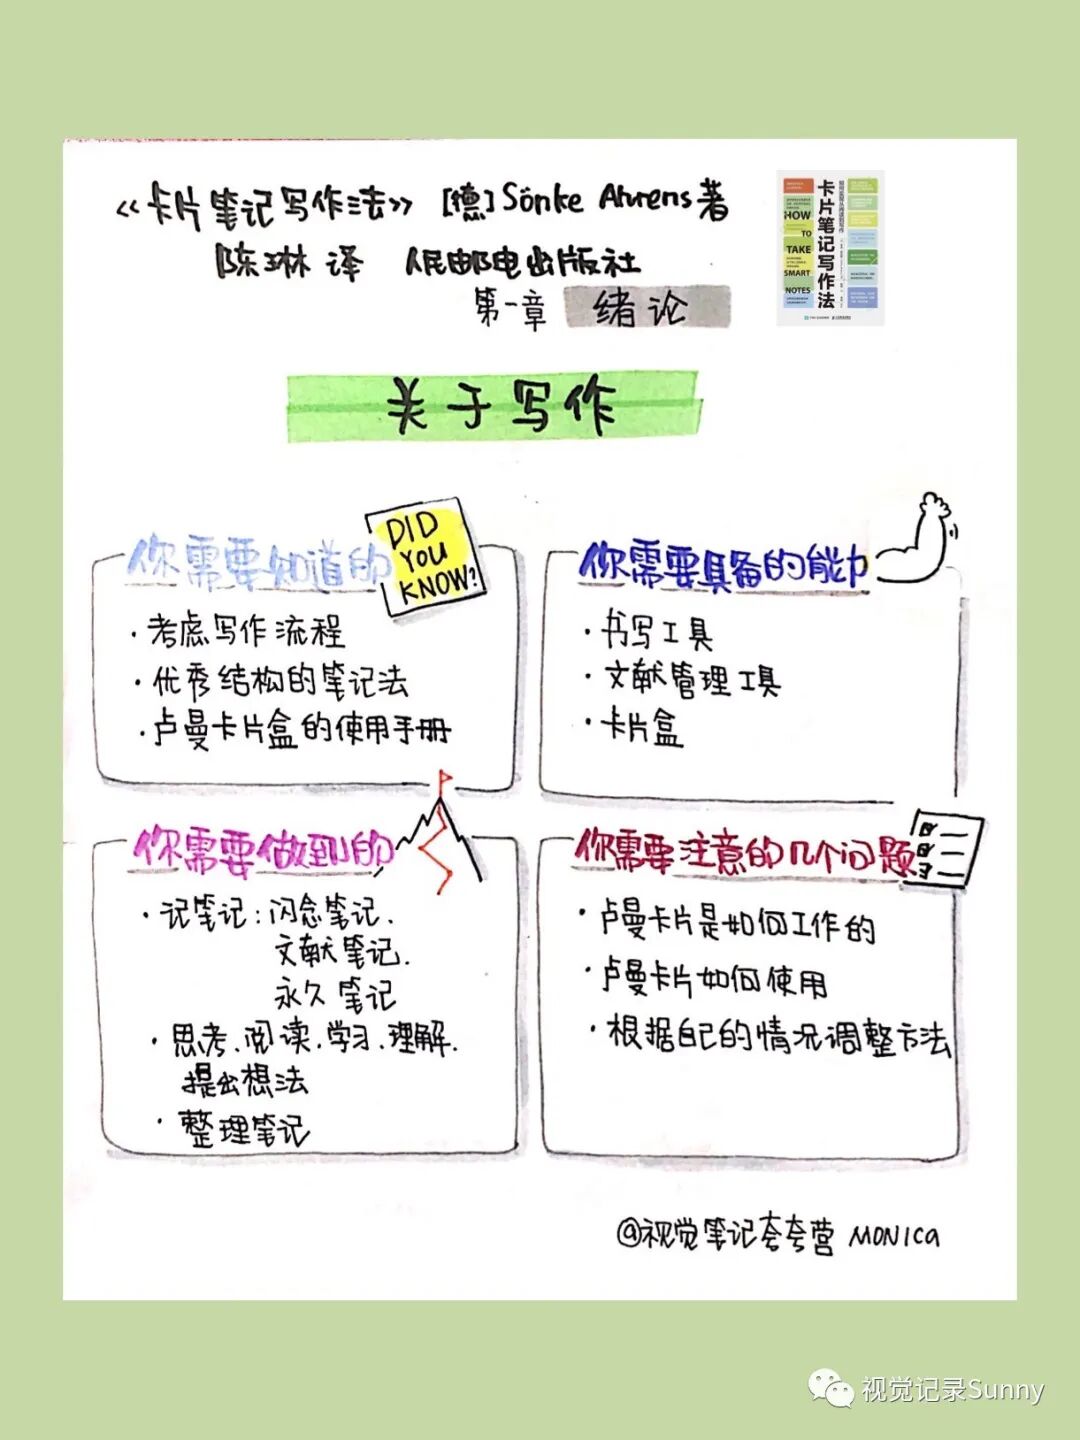 《卡片笔记写作法》 [德]Sönke Ahrens著
陈琳 译 人民邮电出版社
第一章 绪论
HOW
TO
TAKE
SMART
NOTES
卡片笔记写作法
关于写作
你需要知道的
DID
YOU
KNOW?
·考虑写作流程
·优秀结构的笔记法
·卢曼卡片盒的使用手册
你需要具备的能力
·书写工具
·文献管理工具
·卡片盒
你需要做到的
·记笔记:闪念笔记、
文献笔记、
永久笔记
·思考、阅读、学习、理解、
提出想法
·整理笔记
你需要注意的几个问题
·卢曼卡片是如何工作的
·卢曼卡片如何使用
·根据自己的情况调整方法
@视觉笔记夸夸营 MONICA
视觉记录Sunny